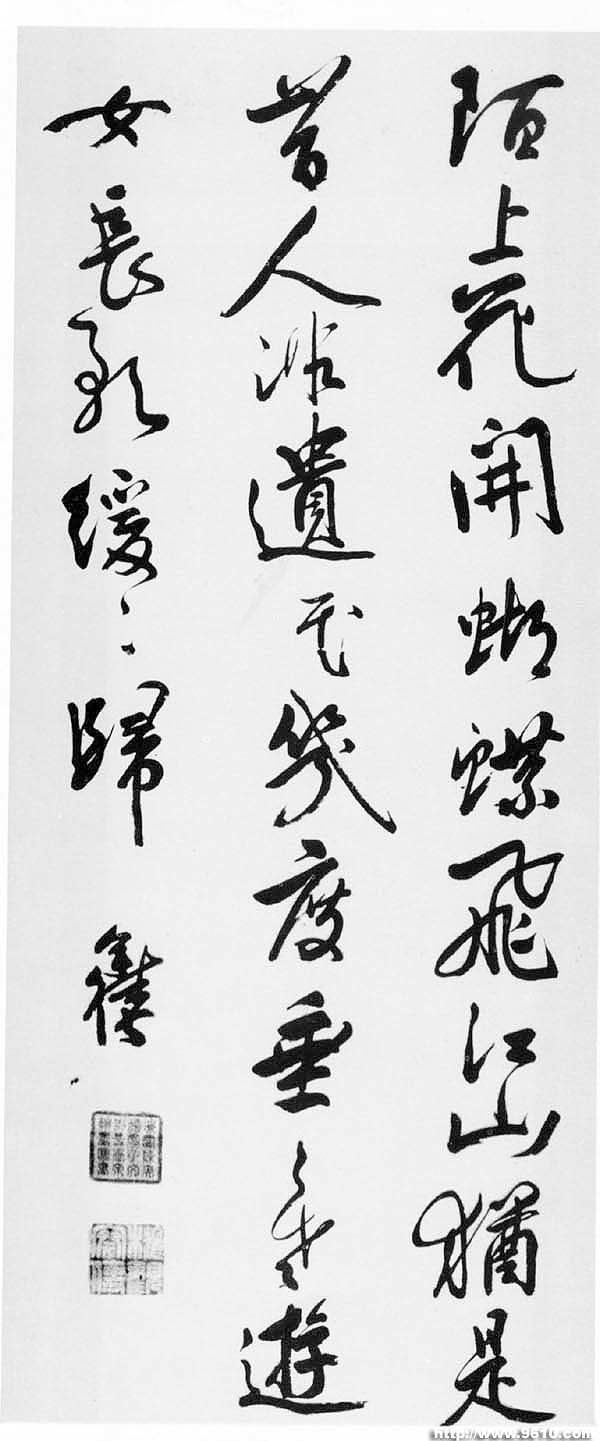 陌上花開蝴蝶飛江山猶是
昔人非遺民幾度垂〻老遊
女長歌緩〻歸
http://www.9610.com